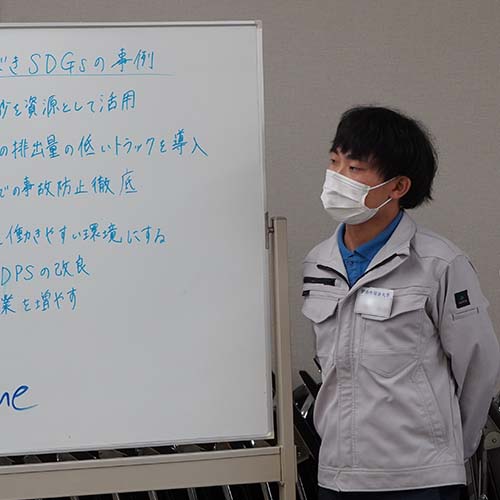 べきSDGsの事例
を資源として活用
の排出量の低いトラックを導入
での事故防止徹底
働きやすい環境にする
DPSの改良
業を増やす
me